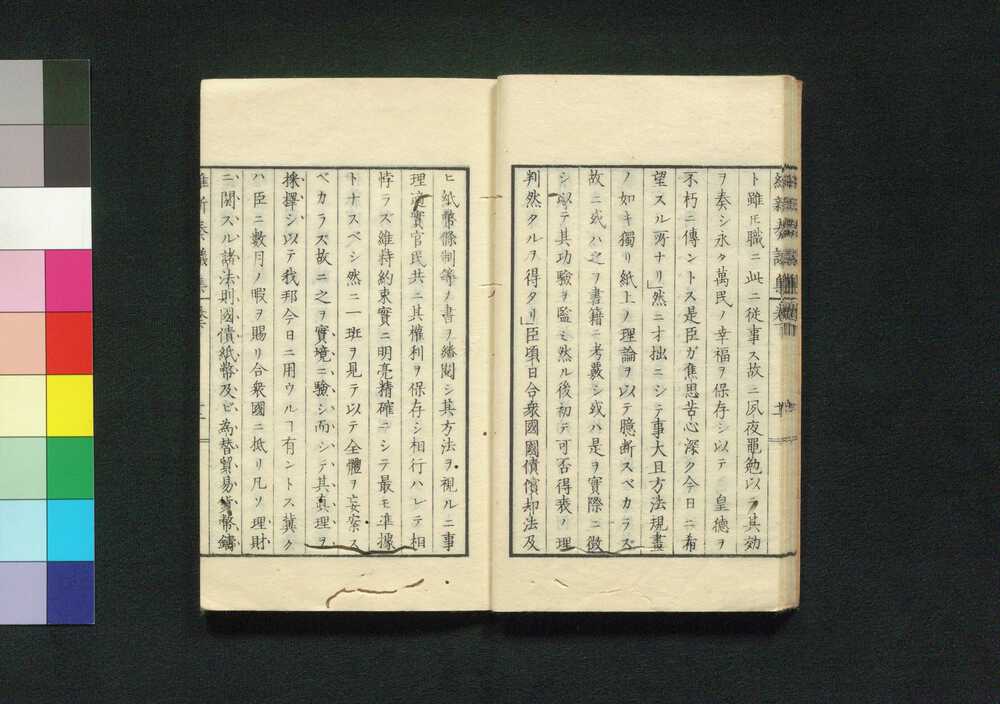 ト雖𪜈職ニ此ニ従事ス故ニ夙夜黽勉以テ其効
ヲ奏シ永ク萬民ノ幸福ヲ保存シ以テ 皇德ヲ
不朽ニ傳ントス是臣ガ焦思苦心深ク今日ニ希
望スル所ナリ」然ニ才拙ニシテ事大且方法規畫
ノ如キ獨リ紙上ノ理論ヲ以テ臆断スベカラズ
故ニ或ハ之ヲ書籍ニ考覈シ或ハ是ヲ實際ニ徴
シ以テ其功驗ヲ監ミ然ル後初テ可否得喪ノ理
判然タルヲ得タリ」臣頃日合衆國國債償却法及
ヒ紙幣條制等ノ書ヲ繙閲シ其方法ヲ視ルニ事
理適實官民共ニ其權利ヲ保存シ相行ハレテ相
悖ラズ維持約束實ニ明亮精確ニシテ最モ準據
トナスベシ然ニ一班ヲ見テ以テ全體ヲ妄案ス
ベカラズ故ニ之ヲ實境ニ驗シ而シテ其真理ヲ
採擇シ以テ我邦今日ニ用ウルヿ有ントス冀ク
ハ臣ニ數月ノ暇ヲ賜リ合衆國ニ抵リ凡ソ理財
ニ関スル諸法則國債紙幣及ビ為替貿易貨幣鑄
維新奏議集